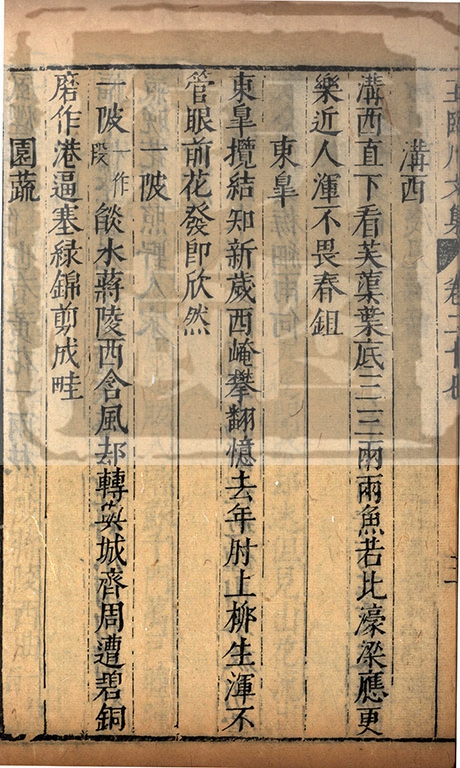 王臨川文集 卷二十七
溝西
溝西直下看芙蕖葉底三三兩兩魚若比濠梁應更
樂近人渾不畏春鉏
東皐
東皐攬結知新歲西崦攀翻憶去年肘上柳生渾不
管眼前花發即欣然
一陂
一陂一作段燄水蔣陵西含風却轉與城齊周遭碧銅
磨作港逼塞緑錦剪成畦
園蔬